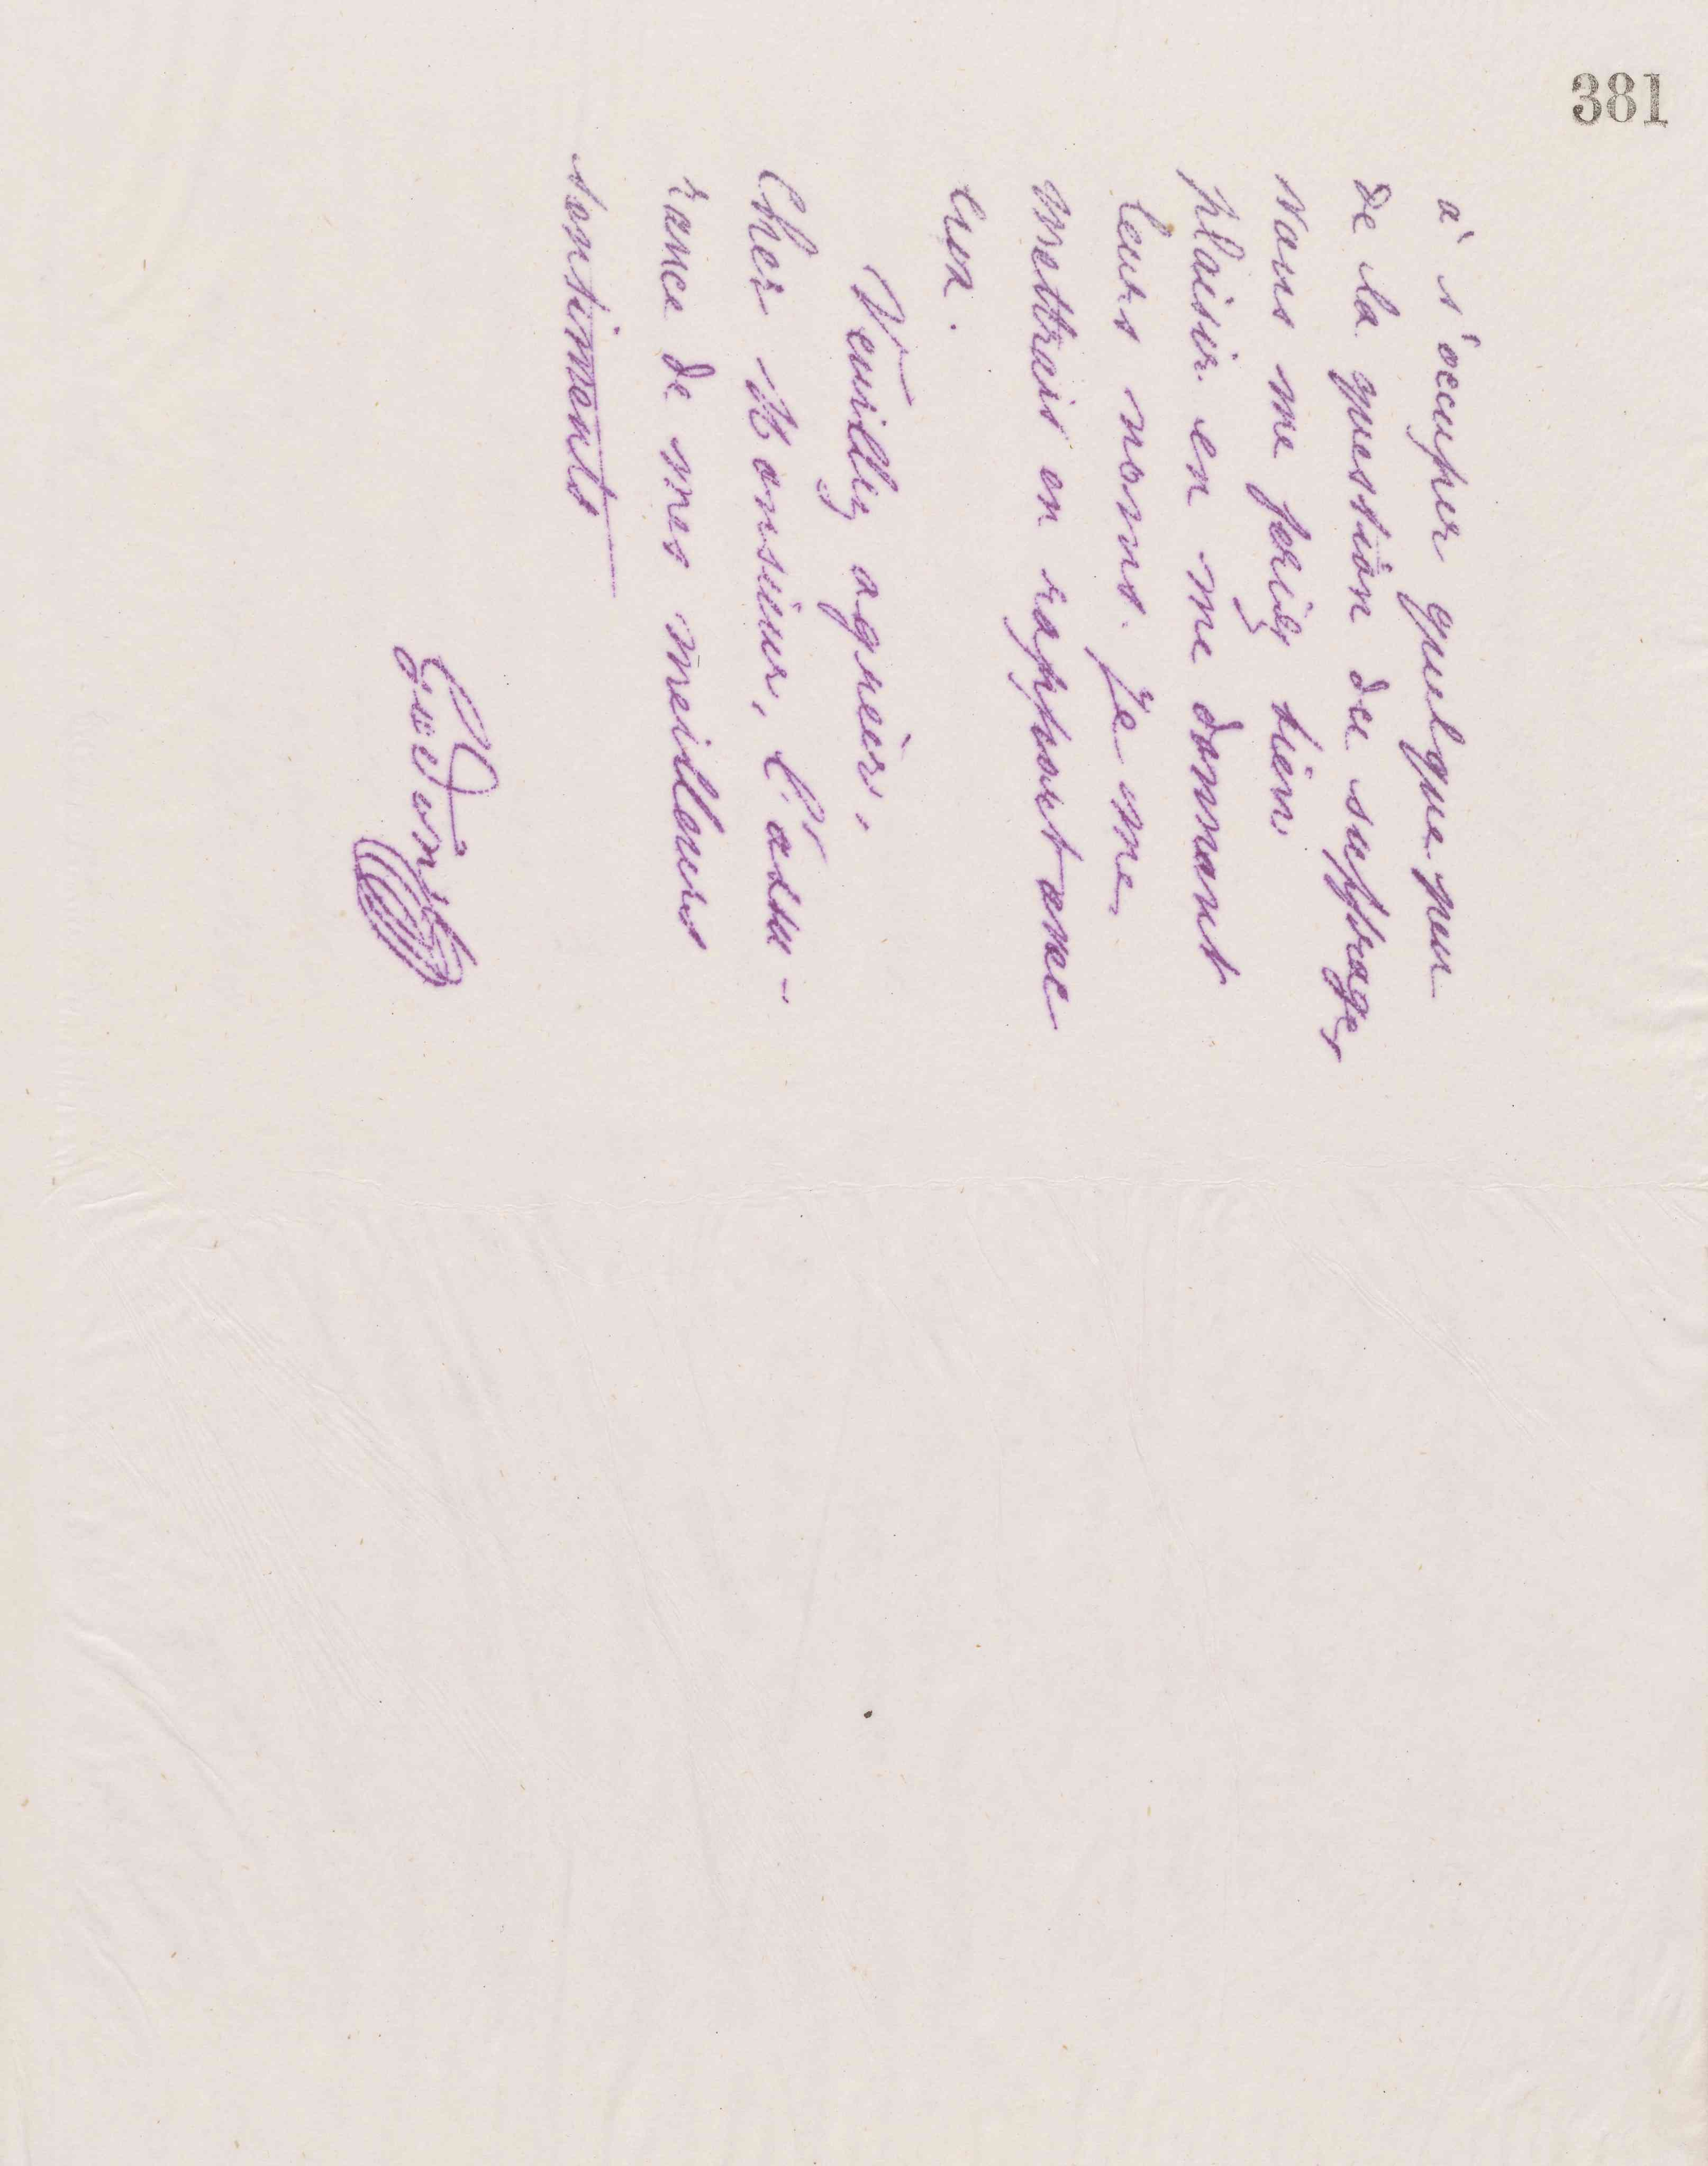 381
à s'occuper quelque peu
de la question du suffrage,
vous me feriez bien
plaisir en me donnant
leurs noms. Je me
mettrais en rapport avec
eux.
Veuillez agréer,
Cher Monsieur, l'assu-
rance de mes meilleurs
sentiments
Godin